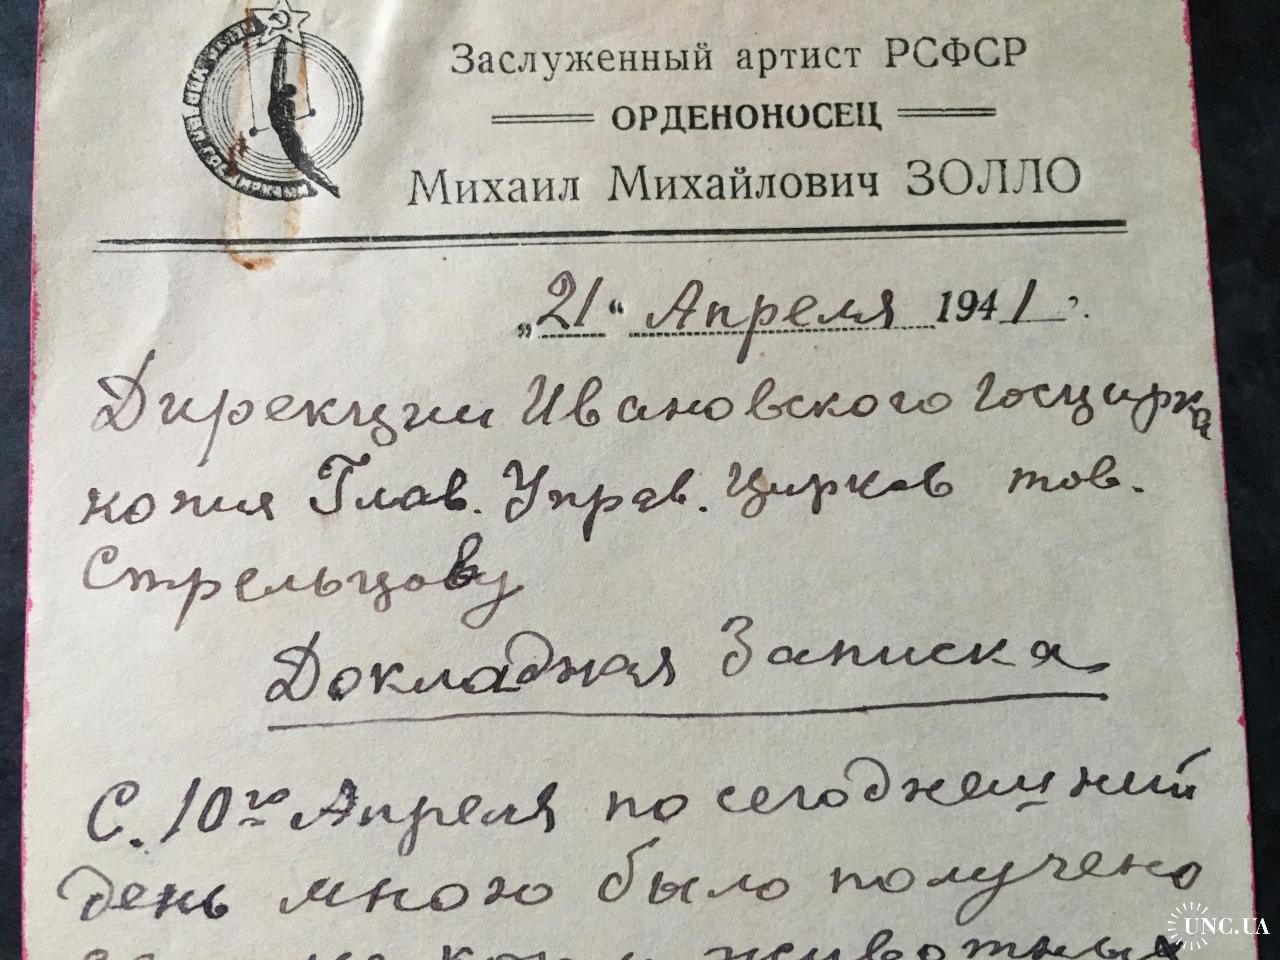 Заслуженный артист РСФСР
ОРДЕНОНОСЕЦ
Михаил Михайлович ЗОЛЛО
„21“ Апреля 1941 г.
Дирекции Ивановского Госцирка
копия Глав. Управ. Цирков тов.
Стрельцову
Докладная Записка
С. 10го Апреля по сегоднешний
день мною было получено
животных
UNC.UA